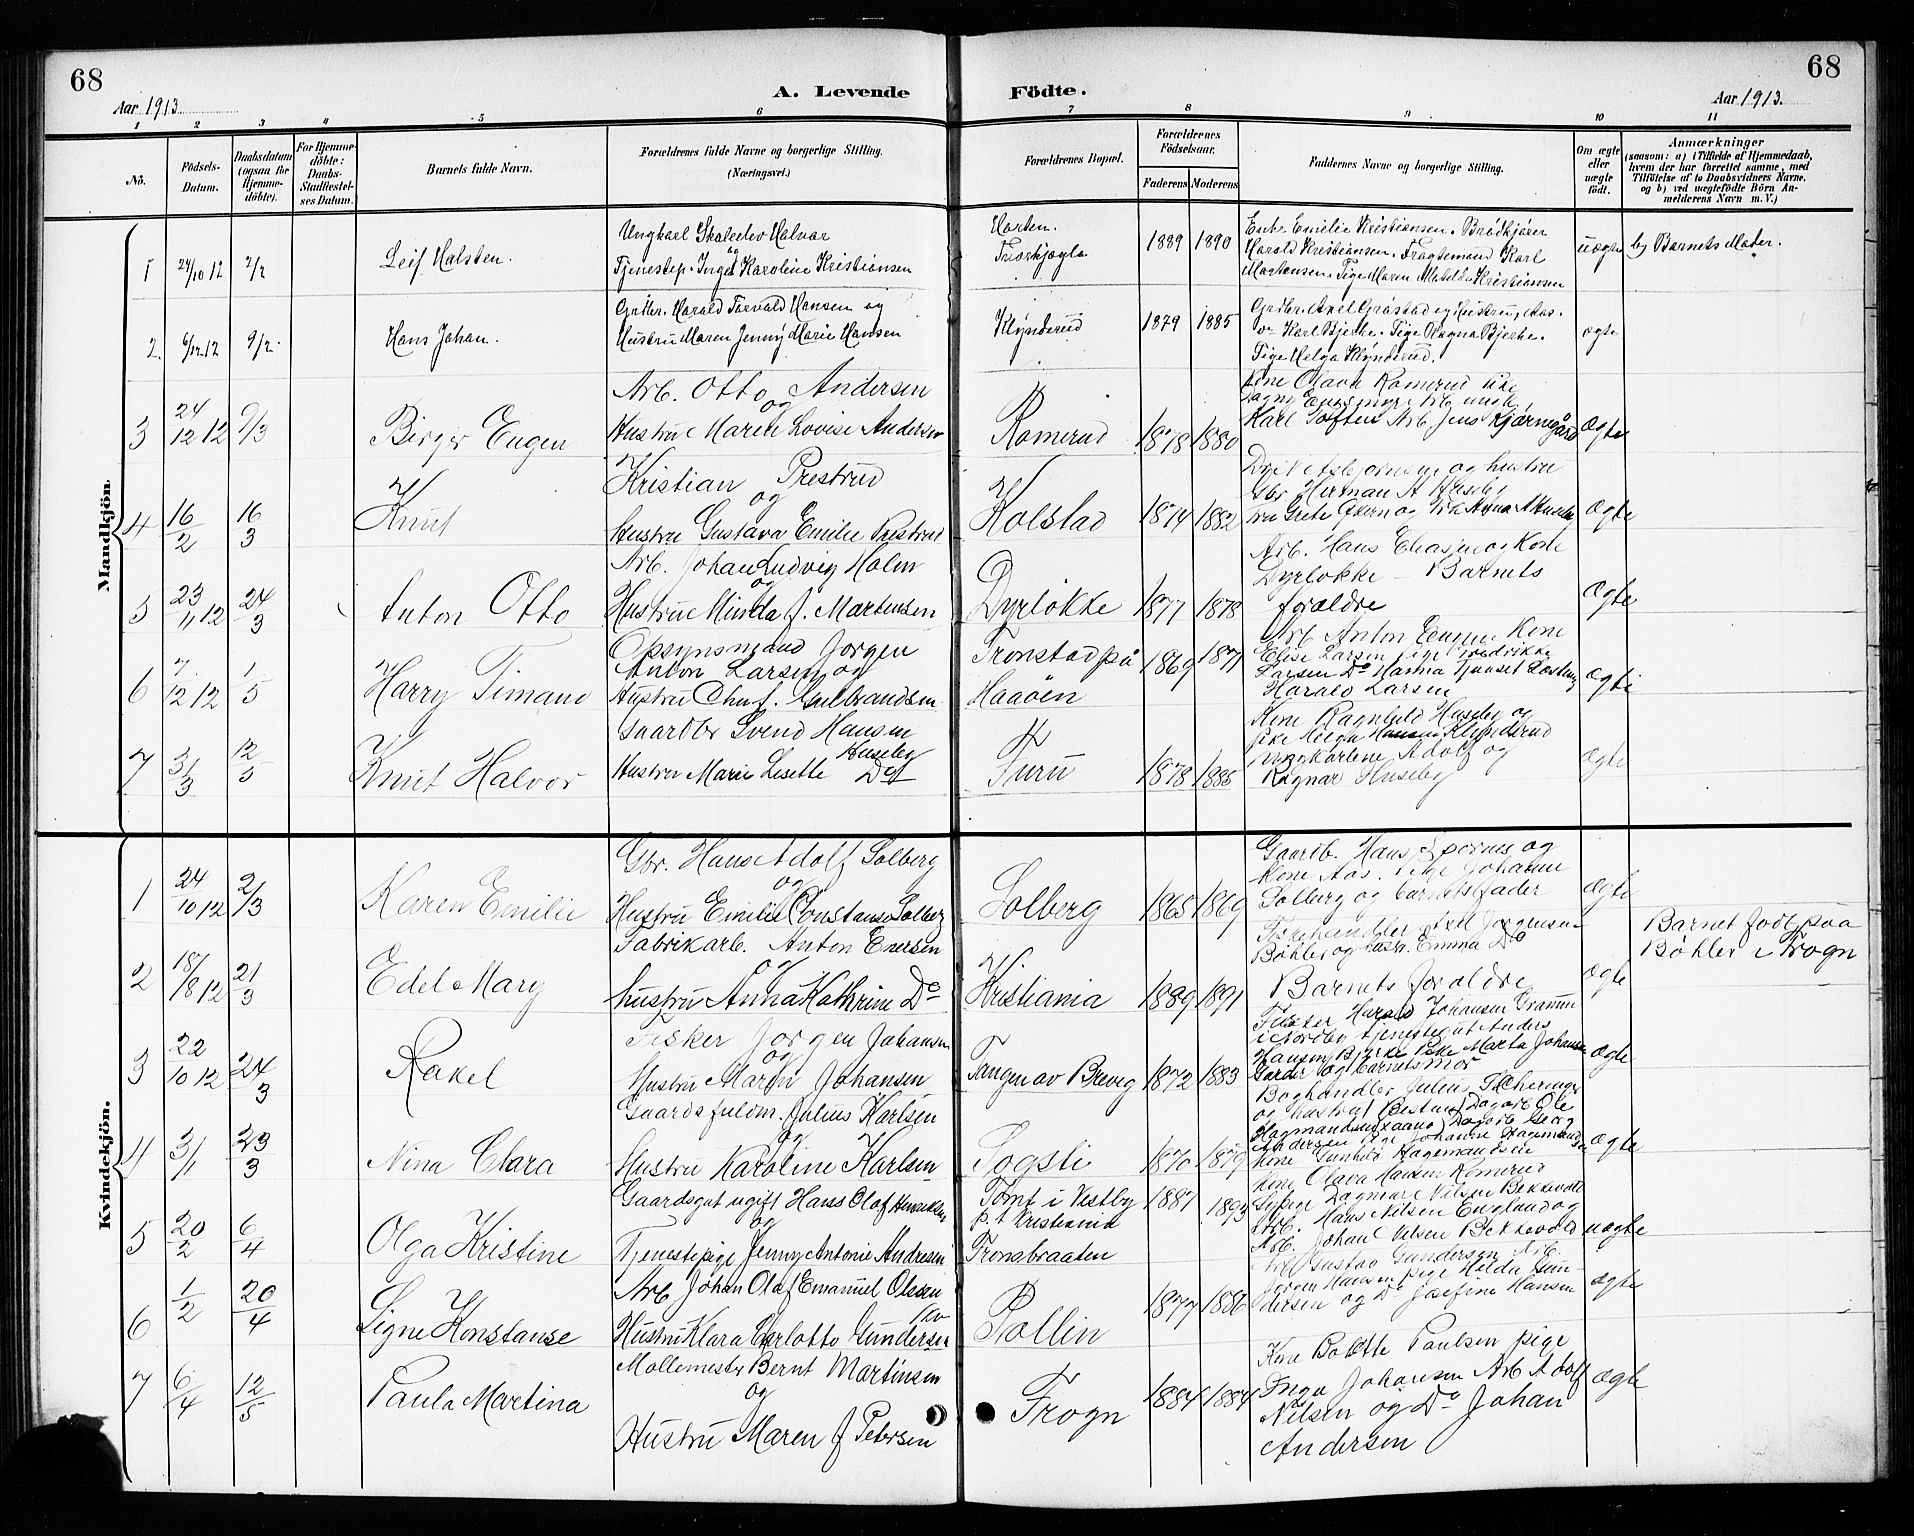 68
68
Aar 1913.
A. Levende
Födte.
Aar 1913.
1 2 3 4 5 6 7 8 9 10 11
No.
Födsels-
Datum.
Daabsdatum
(ogsaa for
Hjemme-
døbte).
For Hjemme-
døbte:
Daabs-
Stadfæstel-
ses Datum.
Barnets fulde Navn.
Forældrenes fulde Navne og borgerlige Stilling.
(Næringsvei.)
Forældrenes Bopæl.
Forældrenes
Födselsaar.
Faderens
Moderens
Faddernes Navne og borgerlige Stilling.
Om ægte
eller
uægte
födt.
Anmærkninger
(saasom: a) i Tilfælde af Hjemmedaab,
hvem der har forrettet samme, med
Tilföielse af to Daabsvidners Navne,
og b) ved uægtefödte Börn An-
melderens Navn m. V.)
Mandkjön.
1
24/10 12
2/2
Leif Halsten.
Ungkael Skoleelev Halvar
og
Tjenestep. Inga Karoline Kristiansen
Horten.
1889
1890
Enke Emilie Kristiansen. Brödkjörer
Harald Kristiansen. Fragtemand Karl
Martensen. Pige Maren Matilde Kristiansen
uægte
b) Barnets Moder.
2.
6/12 12
9/2.
Hans Johan.
Grbr. Harald Torvald Hansen og
Hustru Maren Jenny Marie Hansen
Klynderud
1879
1885
Grbr. Axel Gråstad og Hustru, Aas.
Karl Bjerke. Pige Ragna Bjerke.
Pige Helga Klynderud.
ægte
3
24/12 12
9/3
Birger Eugen
Arb. Otto Andersen
og
Hustru Maren Lovise Andersen
Romerud
1878
1880
Kone Olava Romerud Pike
Karl Toften Arb. Jens Kjærnegård
Ægte
4
16/2
16/3
Knut
Kristian Prestrud
og
Hustru Gustava Emilie Prestrud
Kolstad
1874
1882
Gbr. Herman A Huseby
Ægte
5
23/11 12
24/3
Anton Otto
Arb. Johan Ludvig Holm
og
Hustru Minda J. Martensen
Dyrløkke
1877
1878
Arb. Hans Eliasen og Kone
Dyrløkke – Barnets
forældre
Ægte
6
7/12 12
1/5
Harry Timand
Opsynsmand Jørgen
Anton Larsen og
Hustru Chrf. Gulbrandsen
Tronstad på
Haaöen
1869
1871
Arb Anton Eugen Kone
Elise Larsen pige Fredrikke
Larsen Do Hanna
Harald Larsen
Ægte
7
3/3
12/5
Knut Halvor
Gaardbr Svend Hansen
Huseby
Hustru Marie Lisette Do
Furu
1878
1885
Kone Ragnhild Huseby og
pike Helga Klynderud
ungkarlene Adolf og
Ragnar Huseby
Ægte
Kvindekjön.
1
24/10 12
2/3
Karen Emilie
Gbr. Hans Adolf Solberg
og
Hustru Emilie Constanse Solberg
Solberg
1865
1869
Gaardb. Hans Spornes og
Kone Aas. Pige Johanne
Solberg og barnets fader
Ægte
2
18/8 12
21/3
Edel Mary
Fabrikarb. Anton Enersen
og
Hustru Anna Kathrine Do
Kristiania
1889
1891
Fiskehandler Axel Jørgensen
Bøhler og hustr. Emma Do
Barnets forældre
Ægte
Barnet født paa
Bøhler i Frogn
3
22/10 12
24/3
Rakel
Fisker Jørgen Johansen
og
Hustru Maren Johansen
Tangen av Brevig
1872
1883
Fisker Harald Johansen
i Nordby tjenestegut Anders
Hansen Bjerke Pike Marta Johansen
Garder og barnets mor
Ægte
4
3/1
23/3
Nina Clara
Gaardsfuldm. Julius Karlsen
og
Hustru Karoline Karlsen
Sogsti
1870
1879
Boghandler Julin
Andersen pige Johanne Hagemandsen
Kone Gunhild Hagemandsen
Ægte
5
20/2
6/4
Olga Kristine
Gaardsgut ugift Hans Olaf Henriksen
og
Tjenestepige Jenny Antonie Andresen
Tomt i Vestby
p.t Kristiania
Tronsbraaten
1887
1893
Kone Olava Hansen Romerud
Sypige Dagmar Nilsen Bekkevold
Arb. Hans Nilsen England og
Arb. Johan Nilsen Bekkevold
uægte
6
1/2
20/4
Signe Konstanse
Arb Johan Olaf Emanuel Olsen
Hustru Klara Charlotte Gundersen
Pollin
1877
1886
Arb Gustav Gundersen Arb.
Jørgen Hansen pige Hilda Gun-
dersen og Do Josefine Hansen
Ægte
7
6/4
12/5
Paula Martina
Møllemester Bernt Martinsen
og
Hustru Maren J Petersen
Frogn
1884
1884
Kone Bolette Paulsen pige
Inga Johansen Arb Adolf
Nilsen og Do Johan
Andersen
Ægte